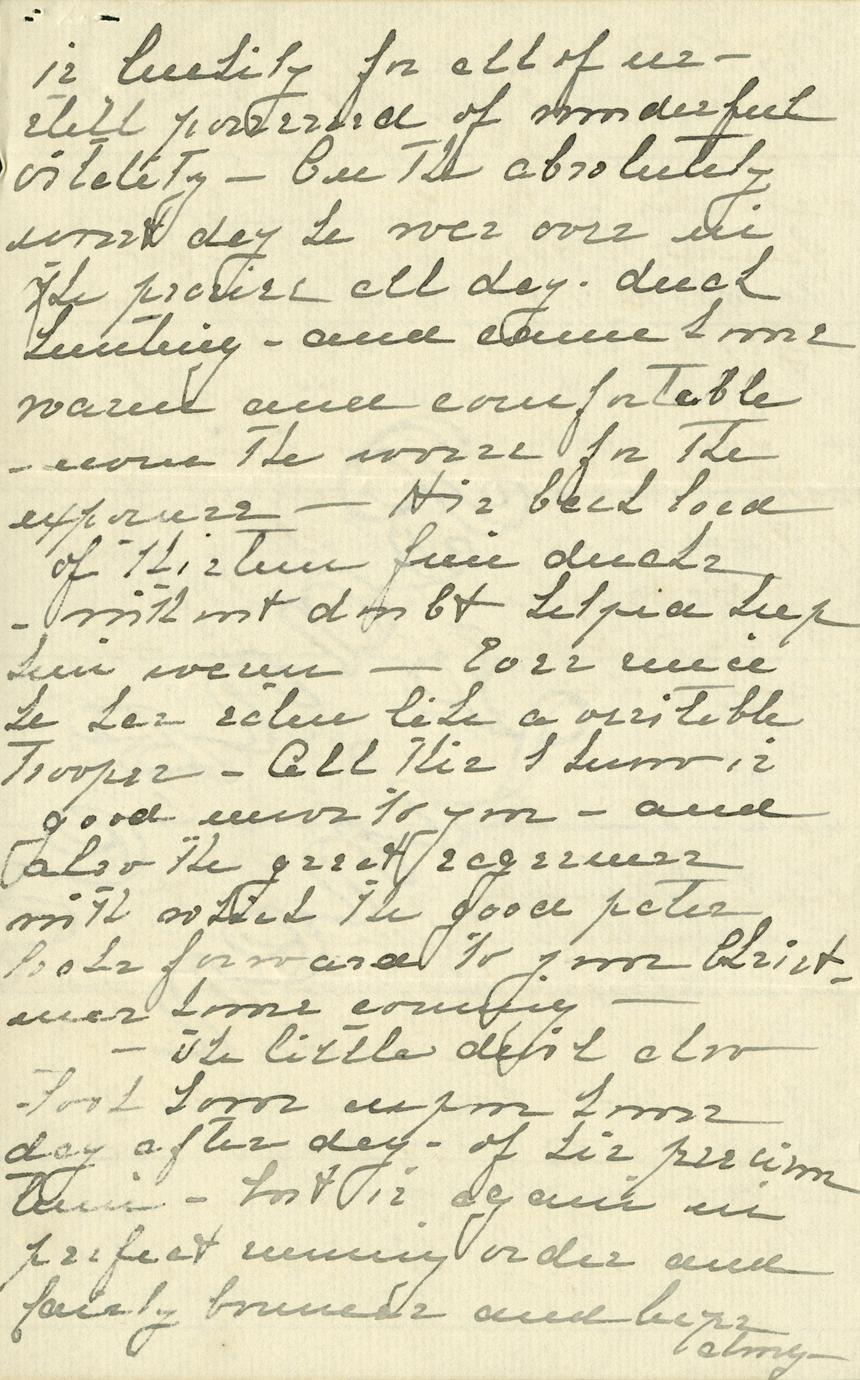 is luckily for all of us —
still possessed of wonderful
vitality — On the absolutely
worst day he was over in
the prairie all day. duck
hunting - and came home
warm and comfortable
- none the worse for the
exposure — His back load
of thirteen fine ducks
- without doubt helped keep
him warm — Ever since
he has eaten like a veritable
Trooper - All this I know is
good news to you - and
also the great eagerness
with which the good pater
looks forward to your Christ-
mas home coming —
- The little devil also
- took hour upon hour
day after day - of his precious
time - but is again in
perfect running order and
fairly bounces and leaps
along —